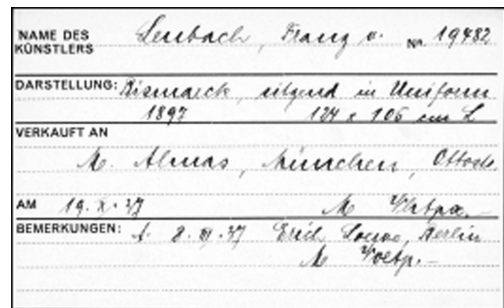 NAME DES KÜNSTLERS Lenbach, Franz v. Nr. 19482
DARSTELLUNG: Bismarck, sitzend in Uniform
1897 124 x 106 cm L
VERKAUFT AN
M. Almas, München, Ottostr.
AM 19. X. 37 M
BEMERKUNGEN: 8. 37 Erich Loewe, Berlin
M